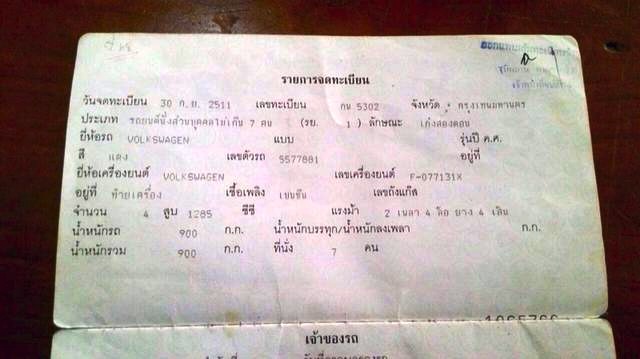 รายการจดทะเบียน
วันจดทะเบียน 30 ก.ย. 2511 เลขทะเบียน กน 5302 จังหวัด กรุงเทพมหานคร
ประเภท รถยนต์นั่งส่วนบุคคลไม่เกิน 7 คน (รย. 1) ลักษณะ เก๋งสองตอน
ยี่ห้อรถ VOLKSWAGEN แบบ รุ่นปี ค.ศ.
สี แดง เลขตัวรถ 5577881 อยู่ที่
ยี่ห้อเครื่องยนต์ VOLKSWAGEN เลขเครื่องยนต์ F-077131X
อยู่ที่ ท้ายเครื่อง เชื้อเพลิง เบนซิน เลขถังแก๊ส
จำนวน 4 สูบ 1285 ซีซี แรงม้า 2 เพลา 4 ล้อ ยาง 4 เส้น
น้ำหนักรถ 900 ก.ก. น้ำหนักบรรทุก/น้ำหนักลงเพลา ก.ก.
น้ำหนักรวม 900 ก.ก. ที่นั่ง 7 คน
เจ้าของรถ